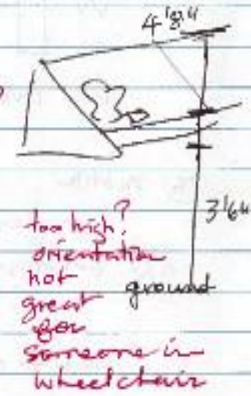 4'8"
3'6"
ground
too high?
orientation
not
great
for
someone in
wheelchair